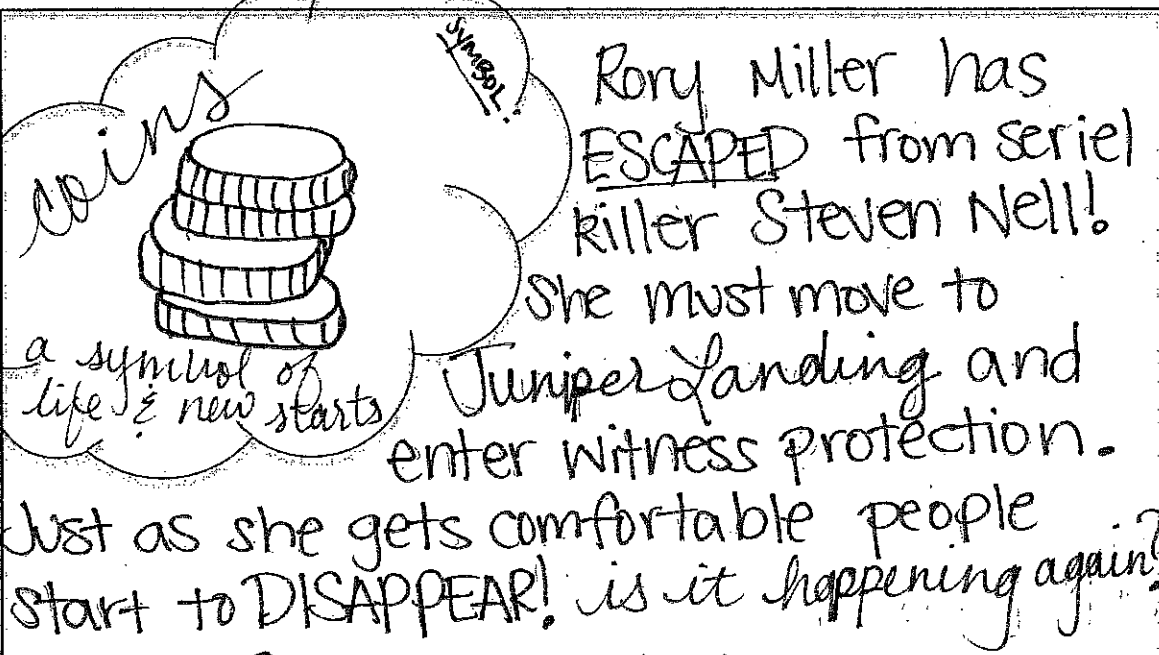 SYMBOL:
coins
a symbol of
life & new starts
Rory Miller has
ESCAPED from seriel
killer Steven Nell!
She must move to
Juniper Landing and
enter witness protection.
Just as she gets comfortable people
start to DISAPPEAR! is it happening again?